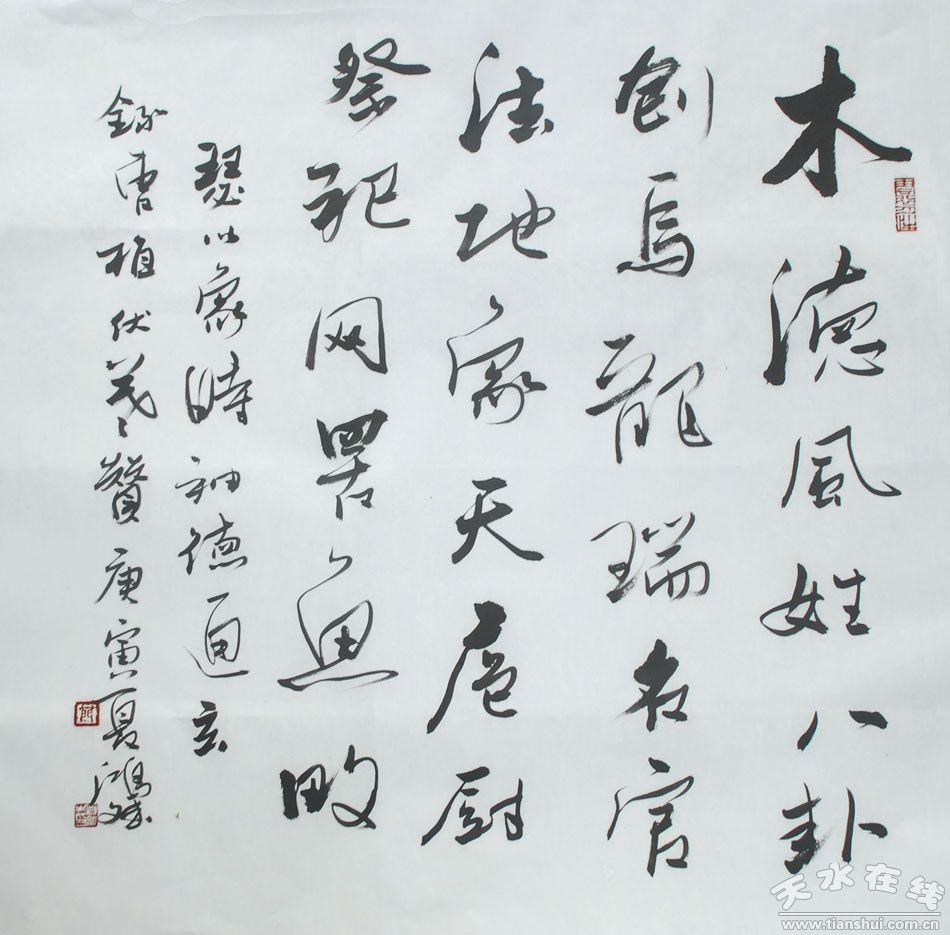 木德風姓八卦
創焉龍瑞名官
法地象天庖厨
祭祀网罟魚畋
瑟以象時神德通玄
録曹植伏羲贊庚寅夏鴻
天水在线
www.tianshui.com.cn